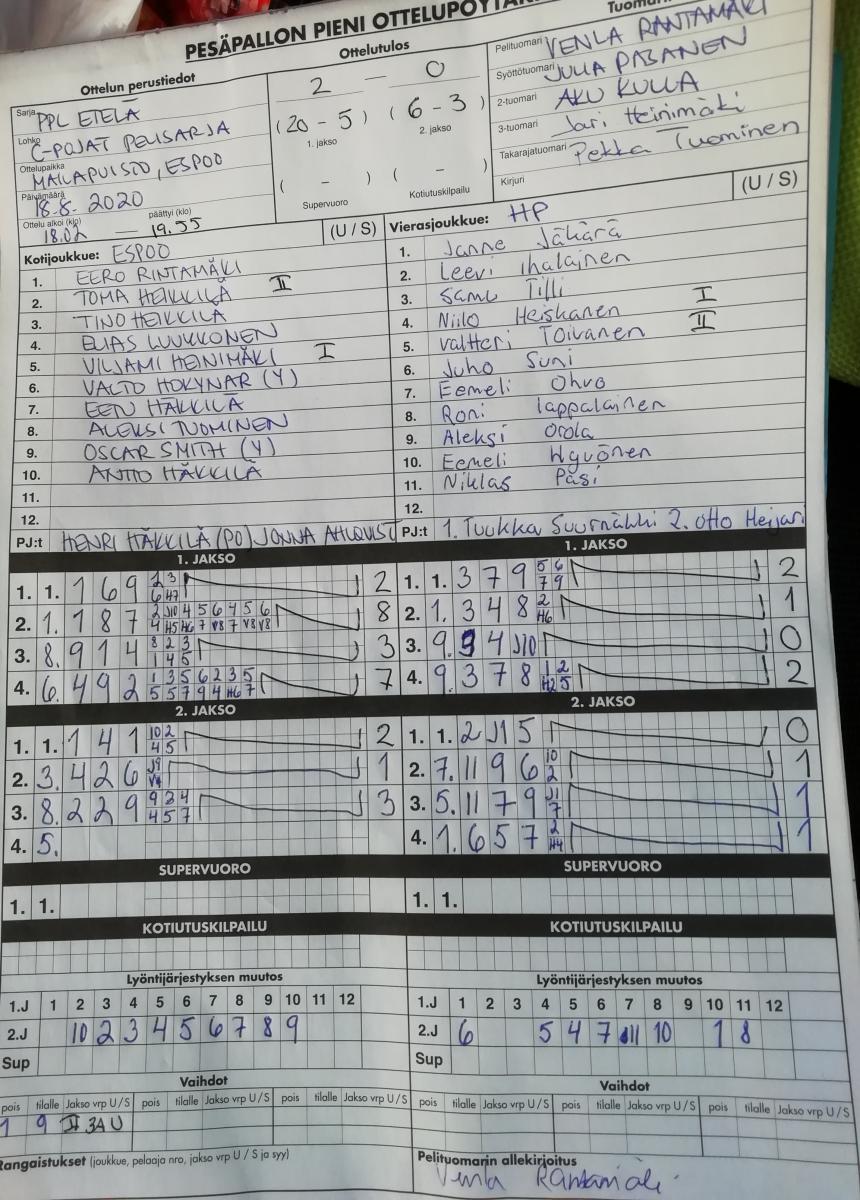 PESÄPALLON PIENI OTTELUPÖYTÄ
Ottelun perustiedot
Sarja PPL ETELÄ
Lohko C-POJAT PELISARJA
Ottelupaikka MAILAPUISTO, ESPOO
Päivämäärä 18.8. 2020
Ottelu alkoi (klo) 18.02 — päättyi (klo) 19.55
Ottelutulos
2 — 0
(20 - 5) (6 - 3)
1. jakso 2. jakso
( - ) ( - )
Supervuoro Kotiutuskilpailu
Pelituomari VENLA RANTAMÄKI
Syöttötuomari JULIA PASANEN
2-tuomari AKU KULLA
3-tuomari Jari Heinimäki
Takarajatuomari Pekka Tuominen
Kirjuri
Kotijoukkue: ESPOO (U / S)
1. EERO RINTAMÄKI
2. TOMA HEIKKILÄ II
3. TINO HEIKKILÄ
4. ELIAS LUUKKONEN
5. VILJAMI HEINIMÄKI I
6. VALTO HOKYNAR (Y)
7. EETU HÄKKILÄ
8. ALEKSI TUOMINEN
9. OSCAR SMITH (Y)
10. ANTTO HÄKKILÄ
11.
12.
PJ:t HENRI HÄKKILÄ (PO) JONNA AHLQVIST
Vierasjoukkue: HP (U / S)
1. Janne Jähärä
2. Leevi Ihalainen
3. Samu Tilli
4. Niilo Heiskanen I
5. Valtteri Toivanen II
6. Juho Suni
7. Eemeli Ohvo
8. Roni Lappalainen
9. Aleksi Orola
10. Eemeli Hyvönen
11. Niklas Pasi
12.
PJ:t 1. Tuukka Suurnäkki 2. Otto Heijari
1. JAKSO
1. 1. 1 6 9 2
2. 1. 1 8 7 8
3. 8. 9 1 4 3
4. 6. 4 9 2 7
2. JAKSO
1. 1. 1 4 1 2
2. 3. 4 2 6 1
3. 8. 2 2 9 3
4. 5.
SUPERVUORO
1. 1.
KOTIUTUSKILPAILU
Lyöntijärjestyksen muutos
1.J 1 2 3 4 5 6 7 8 9 10 11 12
2.J 10 2 3 4 5 6 7 8 9
Sup
Vaihdot
pois tilalle Jakso vrp U / S pois tilalle Jakso vrp U / S pois tilalle Jakso vrp U / S
1 9 II 3A U
Rangaistukset (joukkue, pelaaja nro, jakso vrp U / S ja syy)
1. JAKSO
1. 1. 3 7 9 2
2. 1. 3 4 8 1
3. 9. 9 4 J10 0
4. 9. 3 7 8 2
2. JAKSO
1. 1. 2 J1 5 0
2. 7. 11 9 6 1
3. 5. 11 7 9 1
4. 1. 6 5 7 1
SUPERVUORO
1. 1.
KOTIUTUSKILPAILU
Lyöntijärjestyksen muutos
1.J 1 2 3 4 5 6 7 8 9 10 11 12
2.J 6 5 4 7 11 10 1 8
Sup
Vaihdot
pois tilalle Jakso vrp U / S pois tilalle Jakso vrp U / S pois tilalle Jakso vrp U / S
Pelituomarin allekirjoitus
Venla Rantamäki